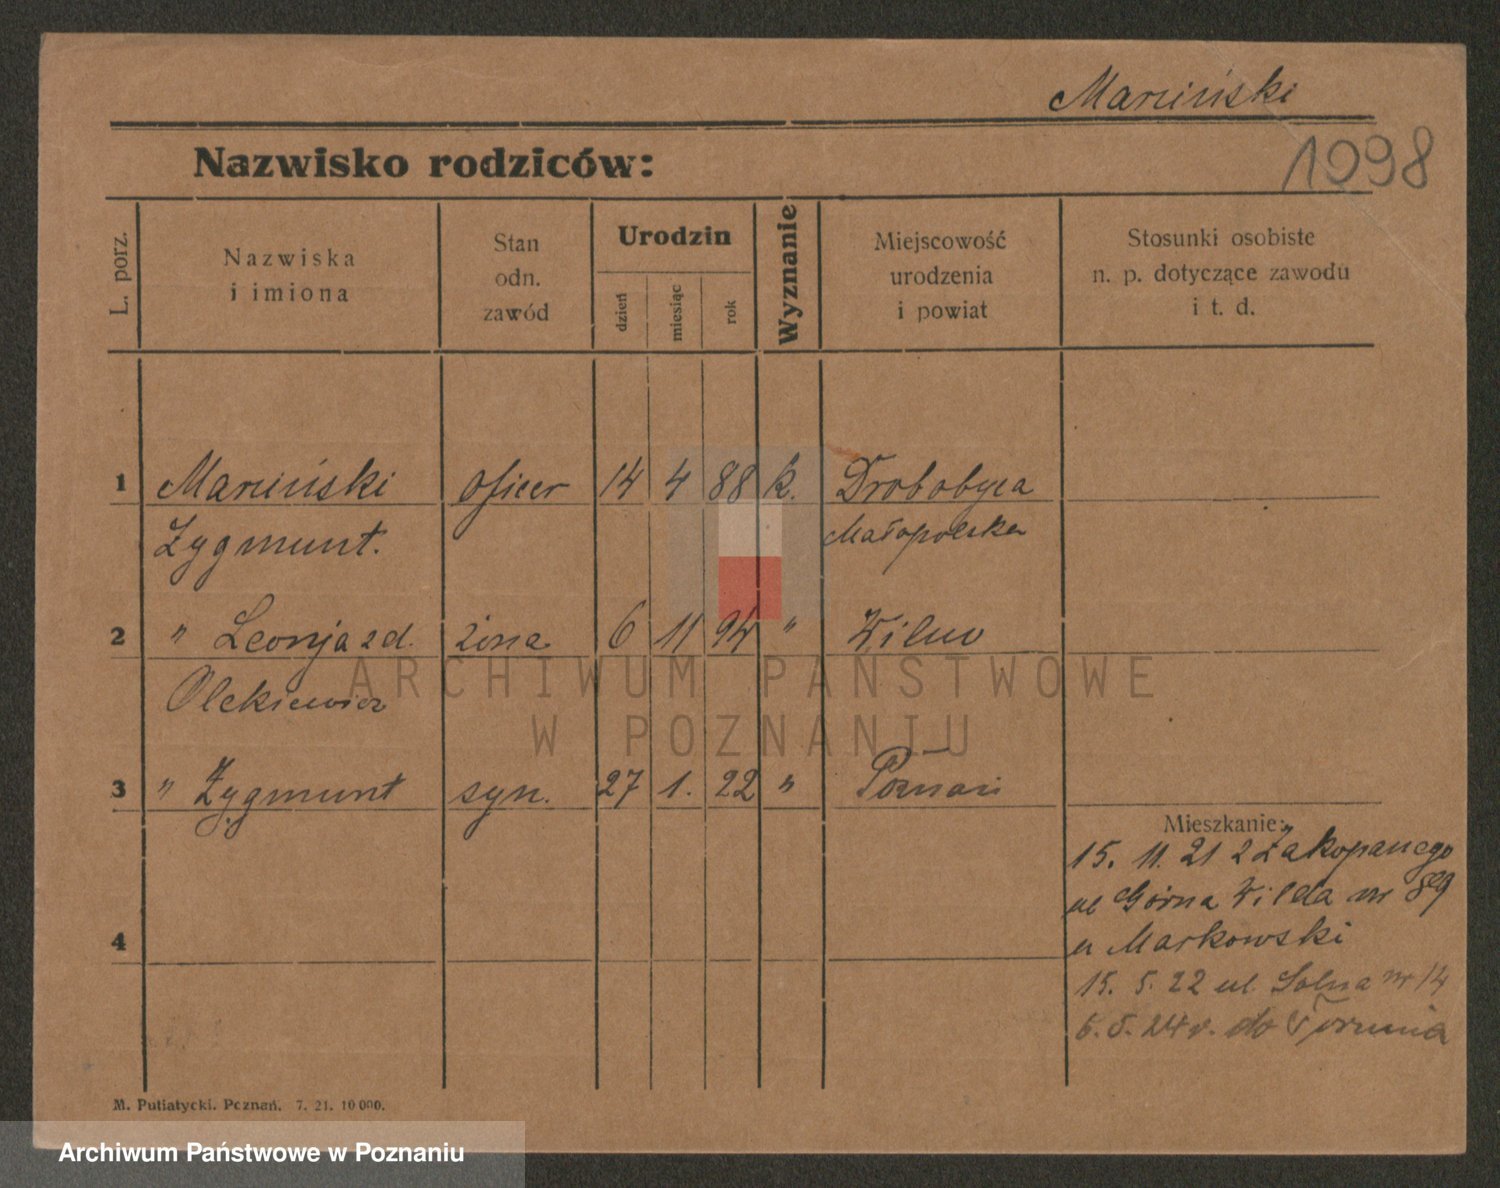 Marciński
1098
Nazwisko rodziców:
L. porz.
Nazwiska
i imiona
Stan
odn.
zawód
Urodzin
dzień
miesiąc
rok
Wyznanie
Miejscowość
urodzenia
i powiat
Stosunki osobiste
n. p. dotyczące zawodu
i t. d.
1 Marciński oficer 14 4 88 k. Drobobyca
Zygmunt. Małopolska
2 " Leonja zd. żona 6 11 94 " Wilno
Olekiewicz
ARCHIWUM PAŃSTWOWE
W POZNANIU
3 " Zygmunt syn. 27 1. 22 " Poznań
Mieszkanie:
15. 11. 21 z Zakopanego
ul Górna Wilda nr
4
u Markowski
15. 5. 22 ul. Solna nr 14
6. 5. 24 r. do Torunia
M. Putiatycki. Poznań. 7. 21. 10 000.
Archiwum Państwowe w Poznaniu